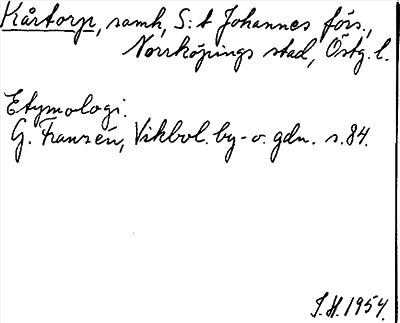 Kårtorp, samh, S:t Johannes förs.,
Norrköpings stad, Östg. l.
Etymologi.
G. Franzén, Vikbol. by- o. gdn. s. 84.
I. H. 1954.